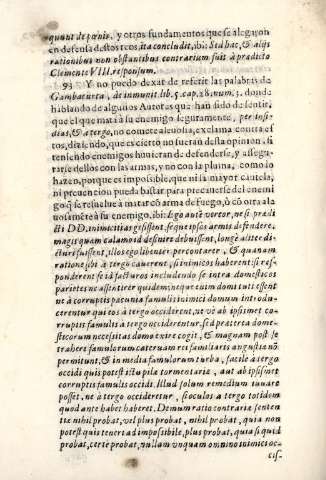 quunt de pœnis, y otros fundamentos que se alegaron
en defensa destos reos, ita concludit, ibi: Sed hac, & alijs
rationibus non obstantibus contrarium fuit à prædicto
Clemente VIII. responsum.
93 Y no puedo dexar de referir las palabras de
Gambacurta, de inmunit. lib. 5. cap. 28. num. 5. donde
hablando de algunos Autores que han sido de sentir,
que el que mata à su enemigo seguramente, per insi-
dias, & à tergo, no comete alevosia, exclama contra es-
tos, diziendo, que es cierto no fueran desta opinion, si
teniendo enemigos huvieran de defenderse, y assegu-
rarse dellos con las armas, y no con la pluma, como lo
hazen, porque es impossible, que ni la mayor cautela,
ni prevencion pueda bastar para precaverse del enemi
go q̃ se resuelve à matar cõ arma de fuego, ò cõ otra ale
vosamẽte à su enemigo, ibi: Ego autẽ vereor, ne si præ
dicti DD. inimicitias gesissent, seque ipsos armis defendere,
magis quam calamo id definire debuissent, longè aliter di-
cturi fuissent, illos ego libenter percontarer, & quanam
ratione sibi à tergo cauerent, si inimicos haberent: si res-
ponderent se id facturos includendo se intra domesticos
parietes ne assentirer quidem; neque enim domi tuti essent
ne à corruptis pecunia famulis inimici domum introdu-
cerentur qui eos à tergo occiderent, ne vè ab ipsismet co-
rruptis famulis à tergo occiderentur, sed præterea dome-
sticorum necessitas domo exire cogit, & magnam post se
trahere famulorum cateruam res familiaris angustia nõ
permitunt, & in media famulorum turba, facile à tergo
occidi quis potest ictu pila tormentaria, aut ab ipsismet
corruptis famulis occidi. Illud solum remedium iuuare
posset, ne à tergo occideretur, si oculos à tergo totidem
quod ante habet haberet. Demum ratio contraria senten
tia nihil probat, vel plus probat, nihil probat, quia non
potest quis teneri ad impossibile, plus probat, quia si quid
probat, certè probat, nullum vnquam omnino inimici oc-
cis-